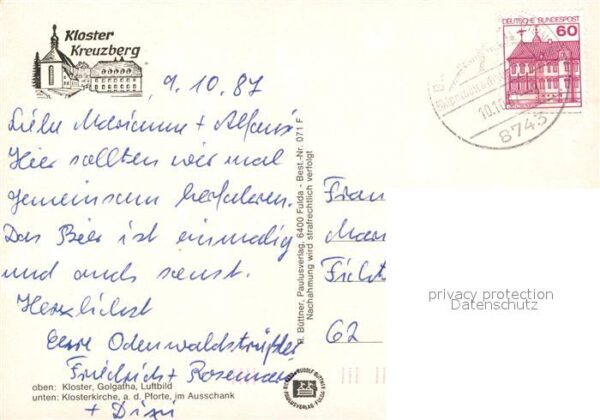 Kloster
Kreuzberg
9.10.87
Liebe Marianne + Alfons
Hier sollten wir mal
gemeinsam herfahren.
Das Bier ist einmalig
und auch sonst.
Herzlichst
Eure
Friedrich + Rosemarie
oben: Kloster, Golgatha, Luftbild
unten: Klosterkirche, a. d. Pforte, im Ausschank
R. Büttner, Paulusverlag, 6400 Fulda - Best.-Nr. 071 F
Nachahmung wird strafrechtlich verfolgt
DEUTSCHE BUNDESPOST
60
10.10
8743
62
privacy protection
Datenschutz